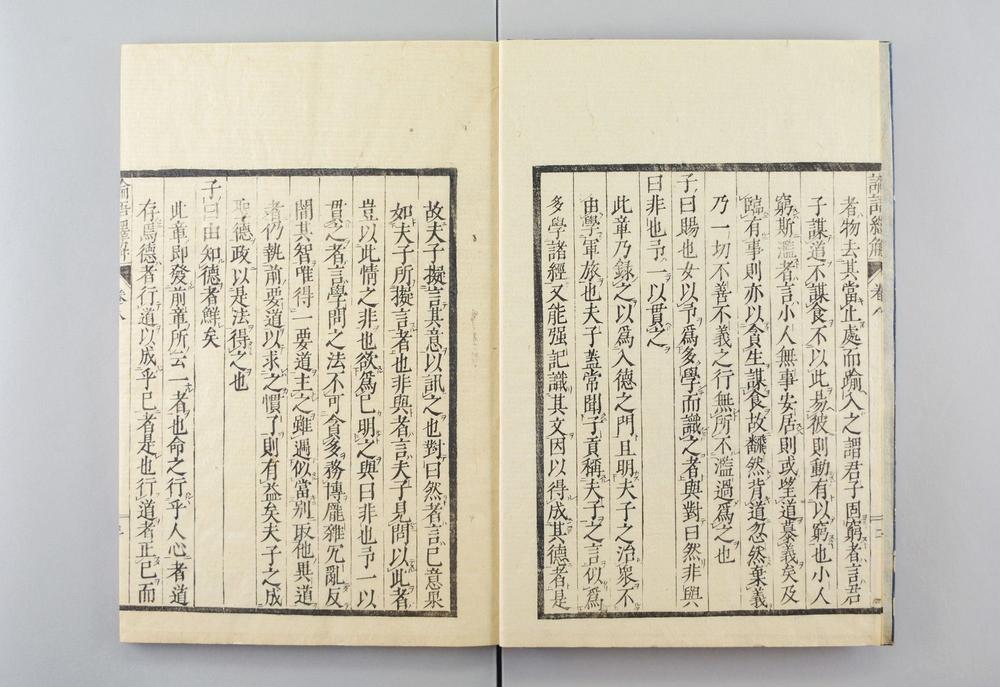 論語繹解 卷八
者物去其當止處而踰入之謂君子固窮者言君
子謀道不謀食不以此易彼則動有以窮也小人
窮斯濫者言小人無事安居則或望道慕義矣及
臨有事則亦以貪生謀食故飜然背道忽然棄義
乃一切不善不義之行無所不濫過爲之也
子曰賜也女以予爲多學而識之者與對曰然非與
曰非也予一以貫之
此章乃錄之以爲入德之門且明夫子之治衆不
由學軍旅也夫子蓋常聞子貢稱夫子之言似爲
多學諸經又能强記識其文因以得成其德者是
故夫子擬言其意以訊之也對曰然者言己意果
如夫子所擬言者也非與者言夫子見問以此者
豈以此情之非也欲爲己明之與曰非也予一以
貫之者言學問之法不可貪多務博龐雜冗亂反
闇其智唯得一要道主之雖遇似當别取他異道
者仍執前要道以求之慣了則有益矣夫子之成
聖德政以是法得之也
子曰由知德者鮮矣
此章即發前章所云一者也命之行乎人心者道
存焉德者行道以成乎己者是也行道者正己而
論語繹解 卷八